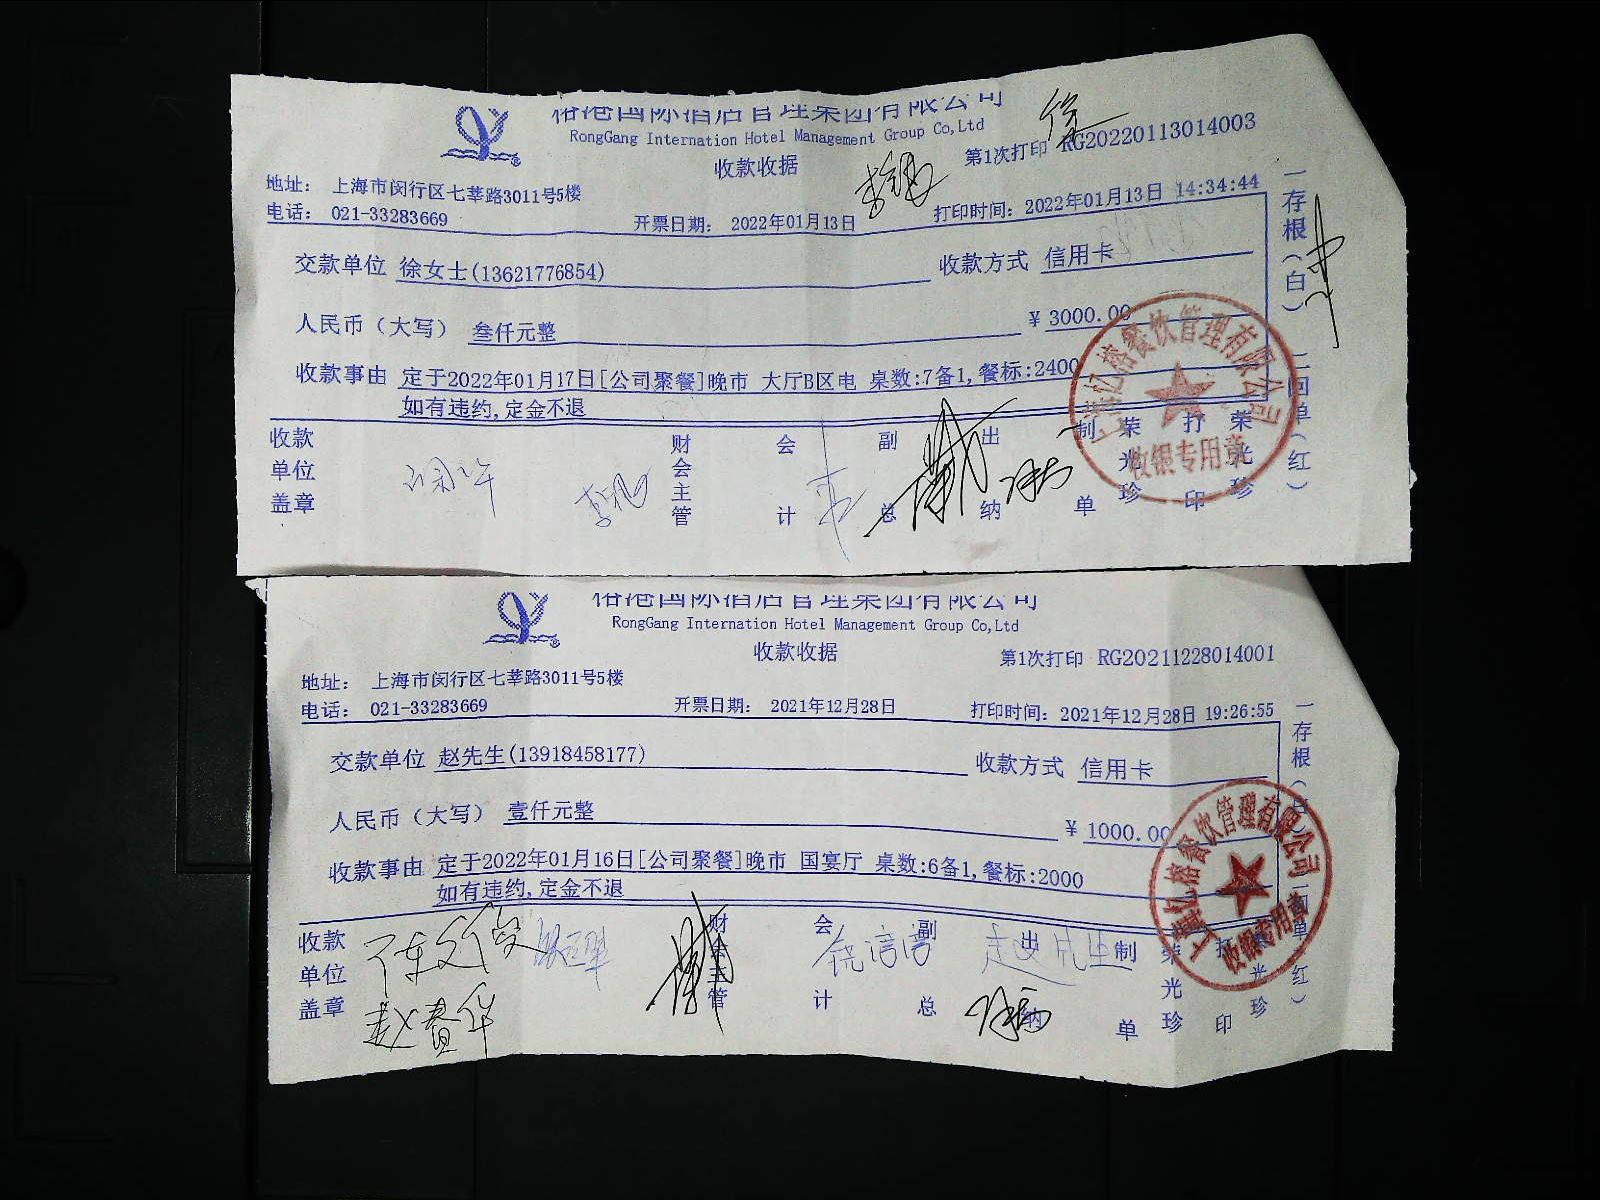 榕港国际酒店管理集团有限公司
RongGang Internation Hotel Management Group Co,Ltd
收款收据
第1次打印 RG20220113014003
地址： 上海市闵行区七莘路3011号5楼
电话： 021-33283669
开票日期： 2022年01月13日
打印时间：2022年01月13日 14:34:44
交款单位 徐女士(13621776854)
收款方式 信用卡
人民币（大写） 叁仟元整
¥ 3000.00
收款事由 定于2022年01月17日[公司聚餐]晚市 大厅B区电 桌数:7备1,餐标:2400
如有违约,定金不退
收款单位盖章
财会主管
会计
副总
出纳
制单
荣光珍
打印
荣光珍
一存根（白） 二回单（红）
上海忆榕餐饮管理有限公司
收银专用章
榕港国际酒店管理集团有限公司
RongGang Internation Hotel Management Group Co,Ltd
收款收据
第1次打印 RG20211228014001
地址： 上海市闵行区七莘路3011号5楼
电话： 021-33283669
开票日期： 2021年12月28日
打印时间：2021年12月28日 19:26:55
交款单位 赵先生(13918458177)
收款方式 信用卡
人民币（大写） 壹仟元整
¥ 1000.00
收款事由 定于2022年01月16日[公司聚餐]晚市 国宴厅 桌数:6备1,餐标:2000
如有违约,定金不退
收款单位盖章
财会主管
会计
副总
出纳
制单
荣光珍
打印
荣光珍
一存根（白） 二回单（红）
上海忆榕餐饮管理有限公司
收银专用章